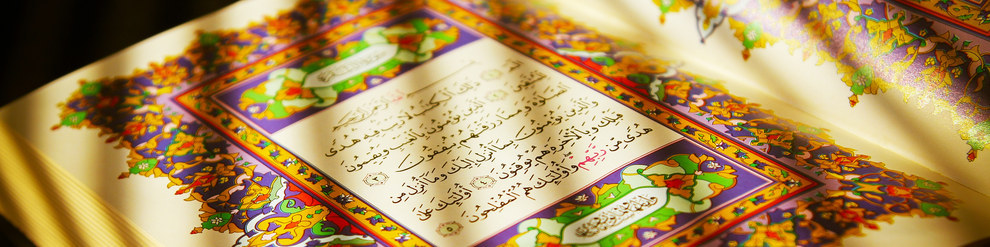 الٓمٓ ذَٰلِكَ ٱلْكِتَٰبُ لَا رَيْبَ فِيهِ هُدًى
لِّلْمُتَّقِينَ ٱلَّذِينَ يُؤْمِنُونَ بِٱلْغَيْبِ وَيُقِيمُونَ
ٱلصَّلَوٰةَ وَمِمَّا رَزَقْنَٰهُمْ يُنفِقُونَ
وَٱلَّذِينَ يُؤْمِنُونَ بِمَآ أُنزِلَ إِلَيْكَ وَمَآ أُنزِلَ مِن
قَبْلِكَ وَبِٱلْءَاخِرَةِ هُمْ يُوقِنُونَ أُو۟لَٰٓئِكَ عَلَىٰ
هُدًى مِّن رَّبِّهِمْ وَأُو۟لَٰٓئِكَ هُمُ ٱلْمُفْلِحُونَ